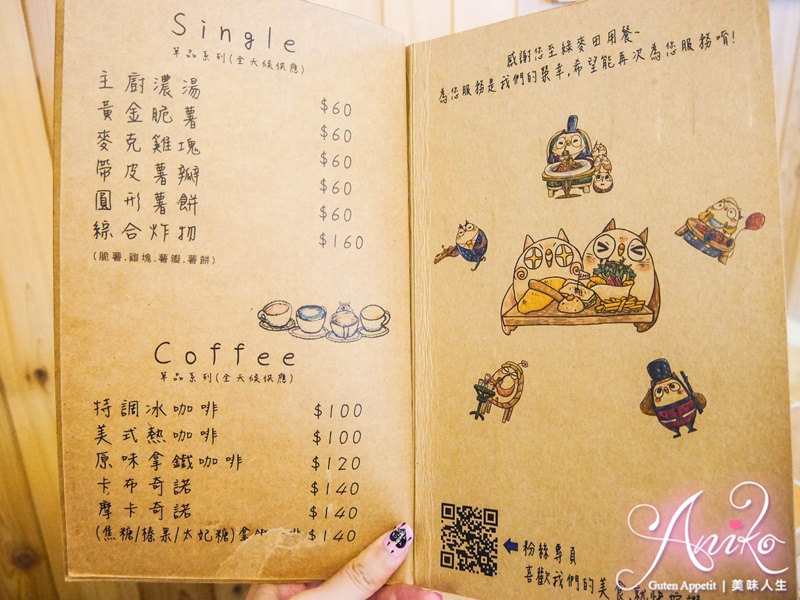 Single
單品系列(全天候供應)
主廚濃湯 $60
黃金脆薯 $60
麥克雞塊 $60
帶皮薯瓣 $60
圓形薯餅 $60
綜合炸物 $160
(脆薯.雞塊.薯瓣.薯餅)
Coffee
單品系列(全天候供應)
特調冰咖啡 $100
美式熱咖啡 $100
原味拿鐵咖啡 $120
卡布奇諾 $140
摩卡奇諾 $140
(焦糖/榛果/太妃糖)拿鐵 $140
感謝您至綠麥田用餐~
為您服務是我們的榮幸,希望能再次為您服務唷!
粉絲專頁
喜歡我們的美食
Aniko
Guten Appetit | 美味人生